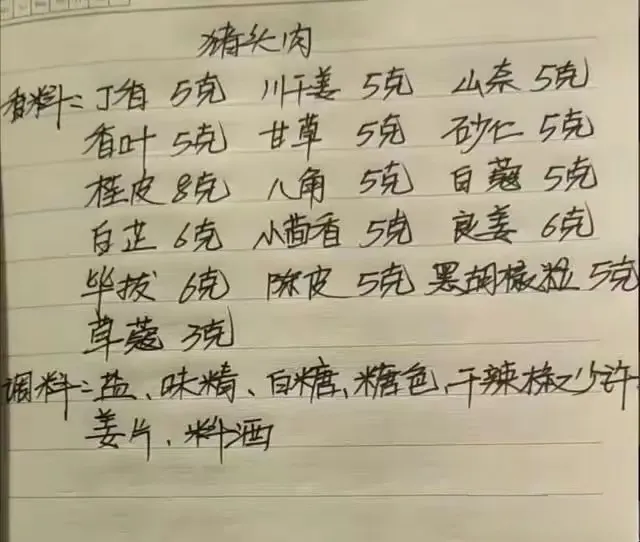 猪头肉
香料：丁香 5克 川干姜 5克 山奈 5克
香叶 5克 甘草 5克 砂仁 5克
桂皮 8克 八角 5克 白蔻 5克
白芷 6克 小茴香 5克 良姜 6克
毕拔 6克 陈皮 5克 黑胡椒粒 5克
草蔻 3克
调料：盐、味精、白糖、糖色、干辣椒少许
姜片、料酒